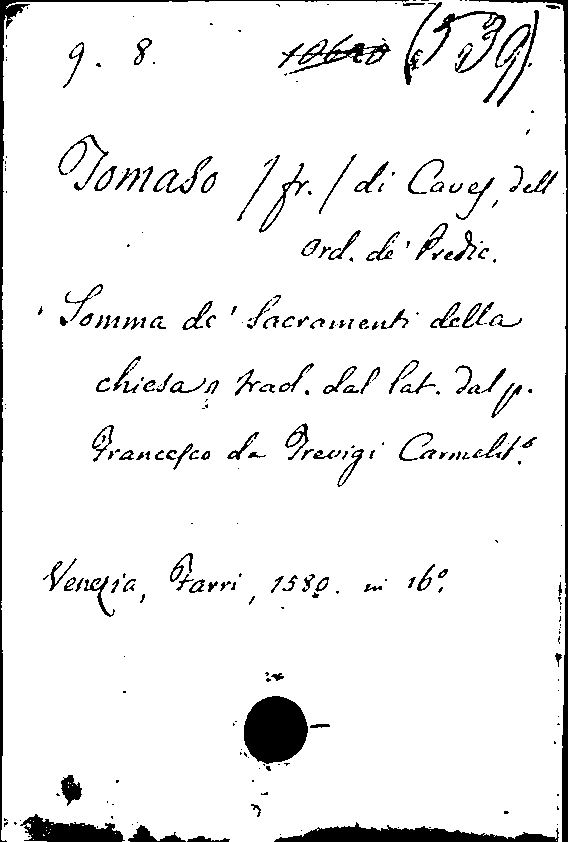 9. 8. 10620 (539)
Tomaso /fr./ di Caves, dell
Ord. de' Predic.
Somma de' Sacramenti della
chiesa trad. dal lat. dal p.
Francesco da Trevigi Carmelit.o
Venezia, Farri, 1580. in 16.o